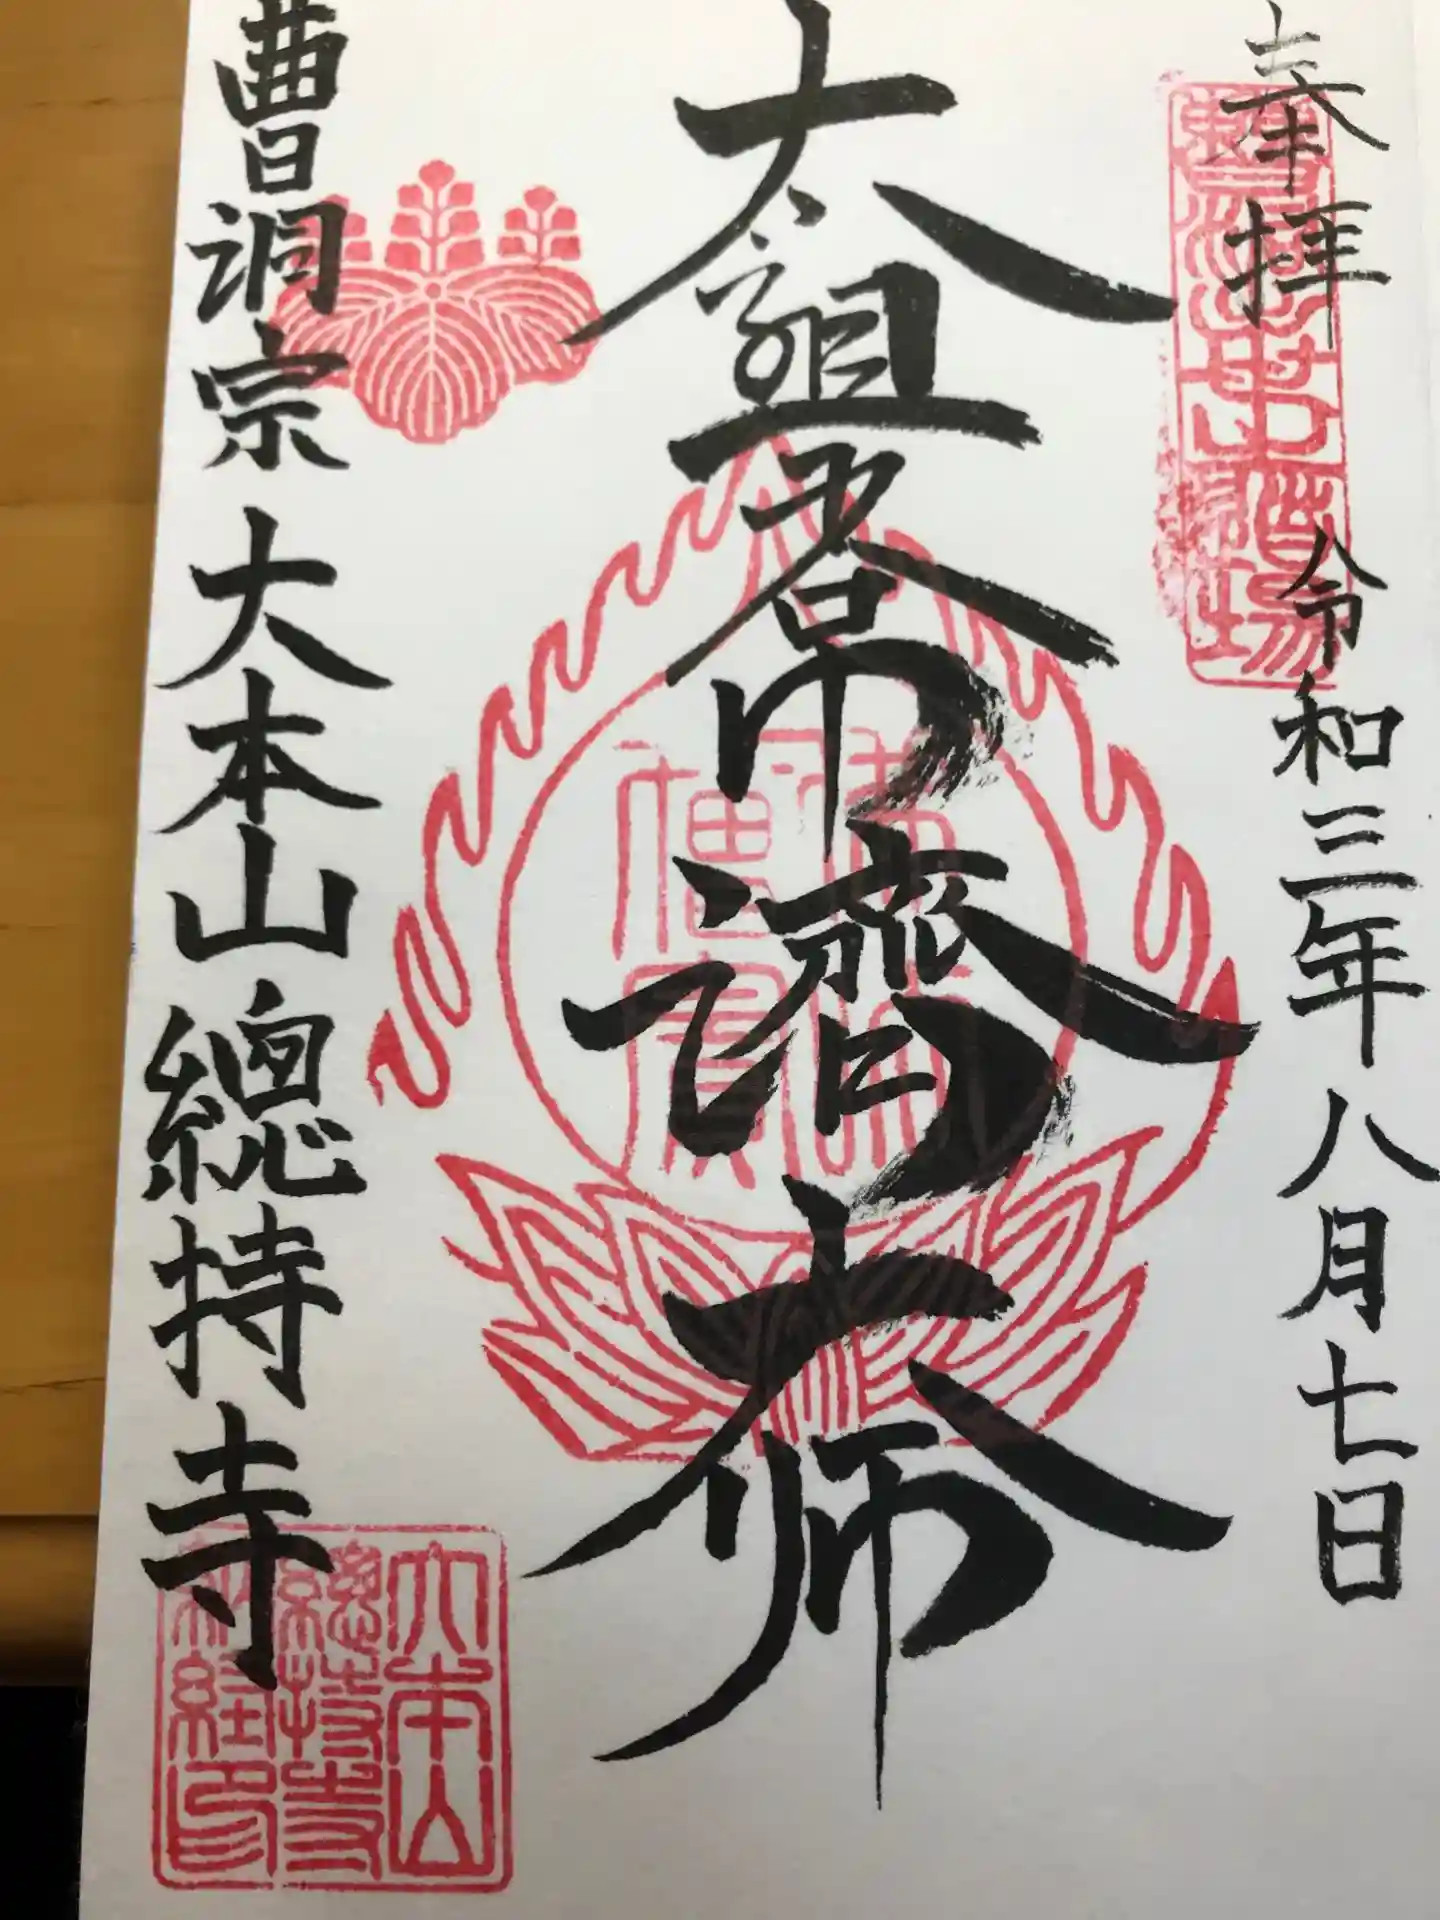 奉拝
令和三年八月七日
太祖常濟大師
佛法僧寶
曹洞宗 大本山 總持寺
大本山
總持寺
納経印